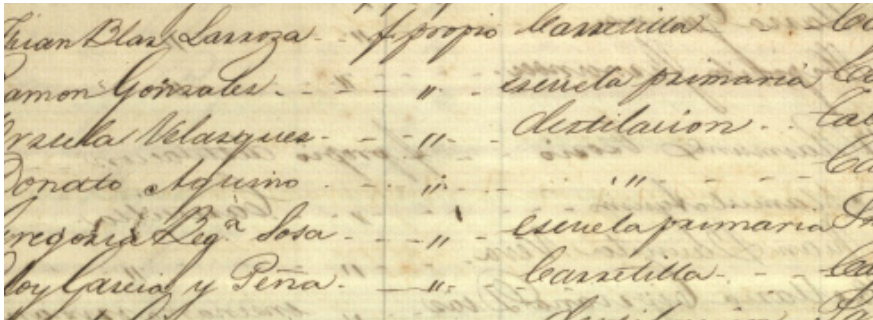 Juan Blas Larroza - f. propio Carretilla
Ramon Gonzales - - " - escuela primaria
Ursula Velasques - - " - destilacion
Donato Aquino - " - "
Gregoria Beg.ª Sosa - - " - escuela primaria
Eloy Garcia y Peña - - " - Carretilla